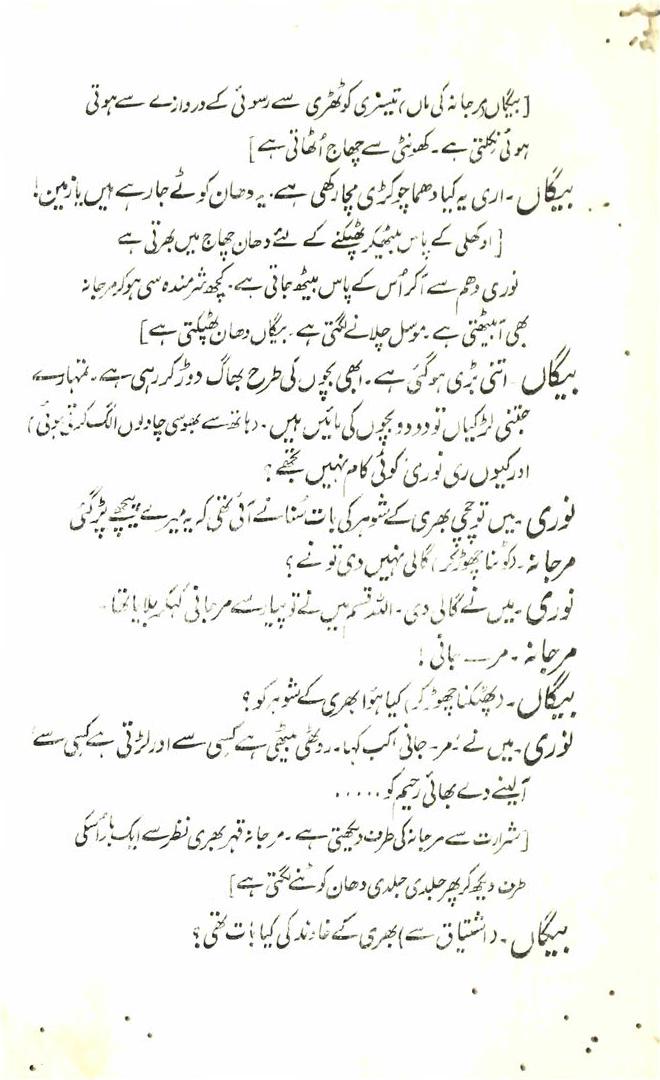 [بیگاں (مرجانہ کی ماں) تیسری کوٹھڑی سے رسوئی کے دروازے سے ہوتی
ہوئی نکلتی ہے۔ کھونٹی سے چھاج اُٹھاتی ہے]
بیگاں۔ اری یہ کیا دھما چوکڑی مچا رکھی ہے۔ یہ دھان کوٹے جا رہے ہیں یا زمین!
[اوکھلی کے پاس بیٹھ کر پھٹکنے کے لئے دھان چھاج میں بھرتی ہے
نوری دھم سے آکر اُس کے پاس بیٹھ جاتی ہے۔ کچھ شرمندہ سی ہو کر مرجانہ
بھی آ بیٹھتی ہے۔ موسل چلانے لگتی ہے۔ بیگاں دھان پھٹکتی ہے]
بیگاں۔ اتنی بڑی ہو گئی ہے۔ ابھی بچوں کی طرح بھاگ دوڑ کر رہی ہے۔ تمہارے
جتنی لڑکیاں تو دو دو بچوں کی مائیں ہیں۔ (ہاتھ سے بھوسی چاولوں الگ کرتی ہوئی)
اور کیوں ری نوری کوئی کام نہیں تجھے؟
نوری۔ میں تو چچی بھری کے شوہر کی بات سُنانے آئی تھی کہ یہ میرے پیچھے پڑ گئی
مرجانہ۔ (کوٹنا چھوڑ کر) گالی نہیں دی تو نے؟
نوری۔ میں نے گالی دی۔ اللہ قسم میں نے تو پیار سے مرجانی کہکر بلایا تھا۔
مرجانہ۔ مر — جانی!
بیگاں۔ (پھٹکنا چھوڑ کر) کیا ہؤا بھری کے شوہر کو؟
نوری۔ میں نے مر۔ جانی کب کہا۔ روٹھی بیٹھی ہے کسی سے اور لڑتی ہے کسی سے
آ لینے دے بھائی رحیم کو.....
[شرارت سے مرجانہ کی طرف دیکھتی ہے۔ مرجانہ قہر بھری نظر سے ایک بار اُسکی
طرف دیکھ کر پھر جلدی جلدی دھان کوٹنے لگتی ہے]
بیگاں۔ (اشتیاق سے) بھری کے خاوند کی کیا بات تھی؟